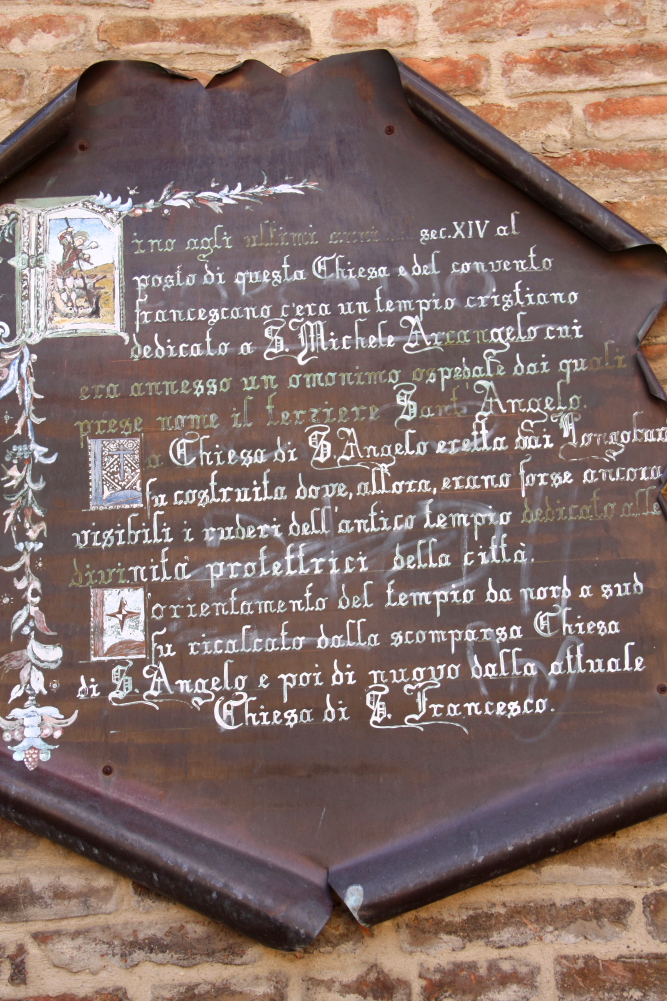 Fino agli ultimi anni sec. XIV al
posto di questa Chiesa e del convento
francescano c'era un tempio cristiano
dedicato a S. Michele Arcangelo cui
era annesso un omonimo ospedale dai quali
prese nome il terziere Sant' Angelo.
La Chiesa di S. Angelo eretta dai Longobar
fu costruita dove, allora, erano forse ancora
visibili i ruderi dell'antico tempio dedicato alle
divinità protettrici della città.
L'orientamento del tempio da nord a sud
fu ricalcato dalla scomparsa Chiesa
di S. Angelo e poi di nuovo dalla attuale
Chiesa di S. Francesco.